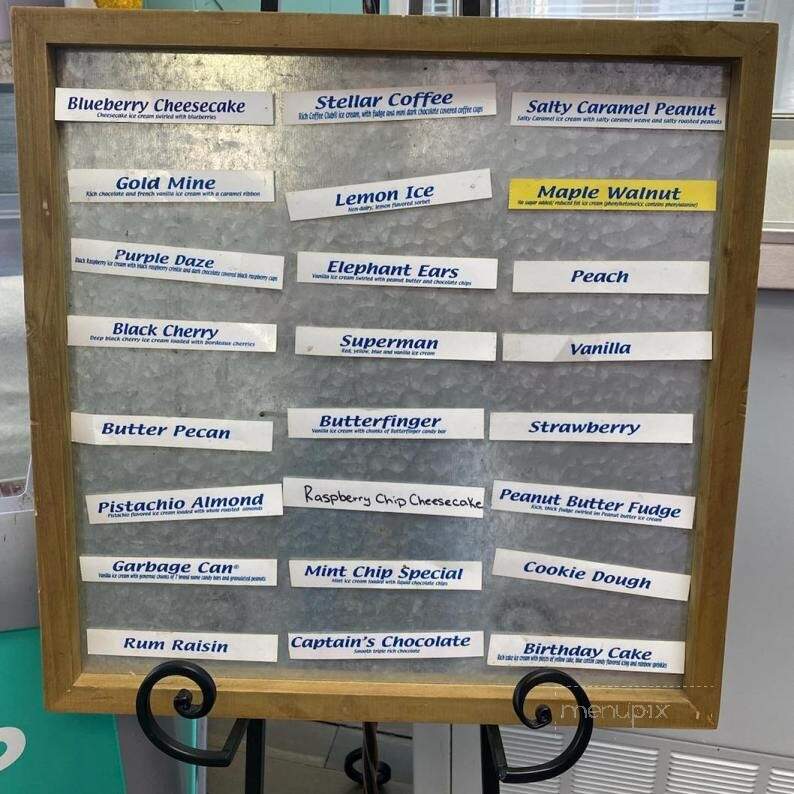 Blueberry Cheesecake
Cheesecake ice cream swirled with blueberries
Stellar Coffee
Rich Coffee Club® ice cream, with fudge and mini dark chocolate covered coffee cups
Salty Caramel Peanut
Salty Caramel ice cream with salty caramel weave and salty roasted peanuts
Gold Mine
Rich chocolate and french vanilla ice cream with a caramel ribbon
Lemon Ice
Non-dairy, lemon flavored sorbet
Maple Walnut
No sugar added/ reduced fat ice cream (phenylketonurics: contains phenylalanine)
Purple Daze
Black Raspberry ice cream with black raspberry crinkle and dark chocolate covered black raspberry cups
Elephant Ears
Vanilla ice cream swirled with peanut butter and chocolate chips
Peach
Black Cherry
Deep black cherry ice cream loaded with bordeaux cherries
Superman
Red, yellow, blue and vanilla ice cream
Vanilla
Butter Pecan
Butterfinger
Vanilla ice cream with chunks of Butterfinger candy bar
Strawberry
Pistachio Almond
Pistachio flavored ice cream loaded with whole roasted almonds
Raspberry Chip Cheesecake
Peanut Butter Fudge
Rich, thick fudge swirled in Peanut butter ice cream
Garbage Can®
Vanilla ice cream with generous chunks of 7 brand name candy bars and granulated peanuts
Mint Chip Special
Mint ice cream loaded with liquid chocolate chips
Cookie Dough
Rum Raisin
Captain's Chocolate
Smooth triple rich chocolate
Birthday Cake
Rich cake ice cream with pieces of yellow cake, blue cotton candy flavored icing and rainbow sprinkles
menupix